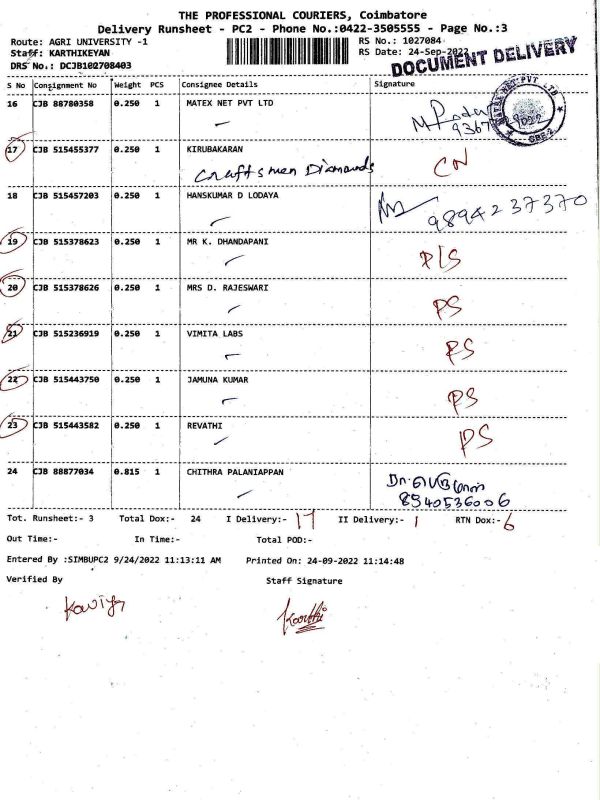 THE PROFESSIONAL COURIERS, Coimbatore
Delivery Runsheet - PC2 - Phone No.:0422-3505555 - Page No.:3
Route: AGRI UNIVERSITY -1 RS No.: 1027084
Staff: KARTHIKEYAN RS Date: 24-Sep-2022
DRS No.: DCJB102708403 DOCUMENT DELIVERY
S No Consignment No Weight PCS Consignee Details Signature
16 CJB 88780358 0.250 1 MATEX NET PVT LTD
MATEX NET PVT LTD
17 CJB 515455377 0.250 1 KIRUBAKARAN CN
Craftsmen Diamonds
18 CJB 515457203 0.250 1 HANSKUMAR D LODAYA
9894237370
19 CJB 515378623 0.250 1 MR K. DHANDAPANI P/S
20 CJB 515378626 0.250 1 MRS D. RAJESWARI PS
21 CJB 515236919 0.250 1 VIMITA LABS PS
22 CJB 515443750 0.250 1 JAMUNA KUMAR PS
23 CJB 515443582 0.250 1 REVATHI PS
24 CJB 88877034 0.815 1 CHITHRA PALANIAPPAN
8940536006
Tot. Runsheet:- 3 Total Dox:- 24 I Delivery:- 17 II Delivery:- 1 RTN Dox:- 6
Out Time:- In Time:- Total POD:-
Entered By :SIMBUPC2 9/24/2022 11:13:11 AM Printed On: 24-09-2022 11:14:48
Verified By Staff Signature
Kaviya Karthi